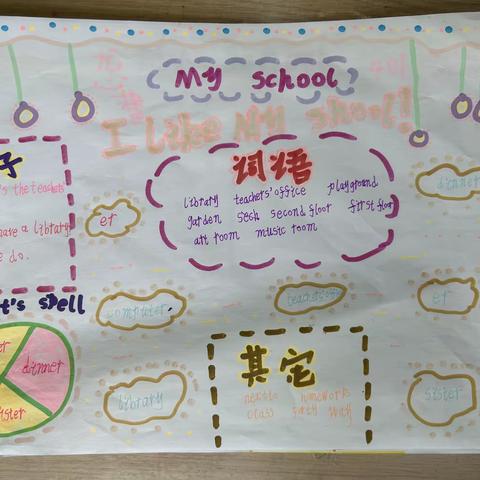 My school
I like My school!
词语
library teachers' office playground
garden second floor first floor
art room music room
子
's the teachers'
have a library
e do.
er
dinner
t's spell
computer
teacher's
er
er
dinner
ister
library
其它
homework
class way
sister